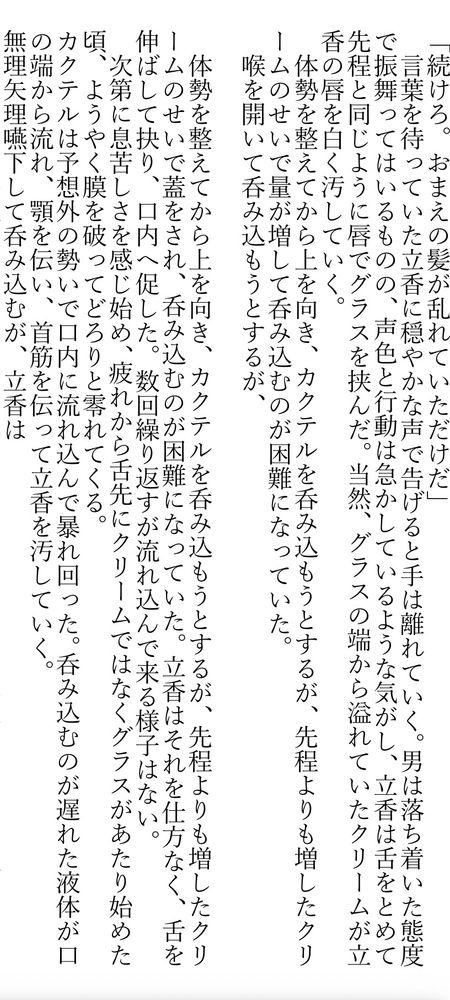 「続けろ。おまえの髪が乱れていただけだ」
　言葉を待っていた立香に穏やかな声で告げると手は離れていく。男は落ち着いた態度
で振舞ってはいるものの、声色と行動は急かしているような気がし、立香は舌をとめて
先程と同じように唇でグラスを挟んだ。当然、グラスの端から溢れていたクリームが立
香の唇を白く汚していく。
　体勢を整えてから上を向き、カクテルを呑み込もうとするが、先程よりも増したクリ
ームのせいで量が増して呑み込むのが困難になっていた。
　喉を開いて呑み込もうとするが、
　体勢を整えてから上を向き、カクテルを呑み込もうとするが、先程よりも増したクリ
ームのせいで蓋をされ、呑み込むのが困難になっていた。立香はそれを仕方なく、舌を
伸ばして抉り、口内へ促した。数回繰り返すが流れ込んで来る様子はない。
　次第に息苦しさを感じ始め、疲れから舌先にクリームではなくグラスがあたり始めた
頃、ようやく膜を破ってどろりと零れてくる。
カクテルは予想外の勢いで口内に流れ込んで暴れ回った。呑み込むのが遅れた液体が口
の端から流れ、顎を伝い、首筋を伝って立香を汚していく。
無理矢理嚥下して呑み込むが、立香は